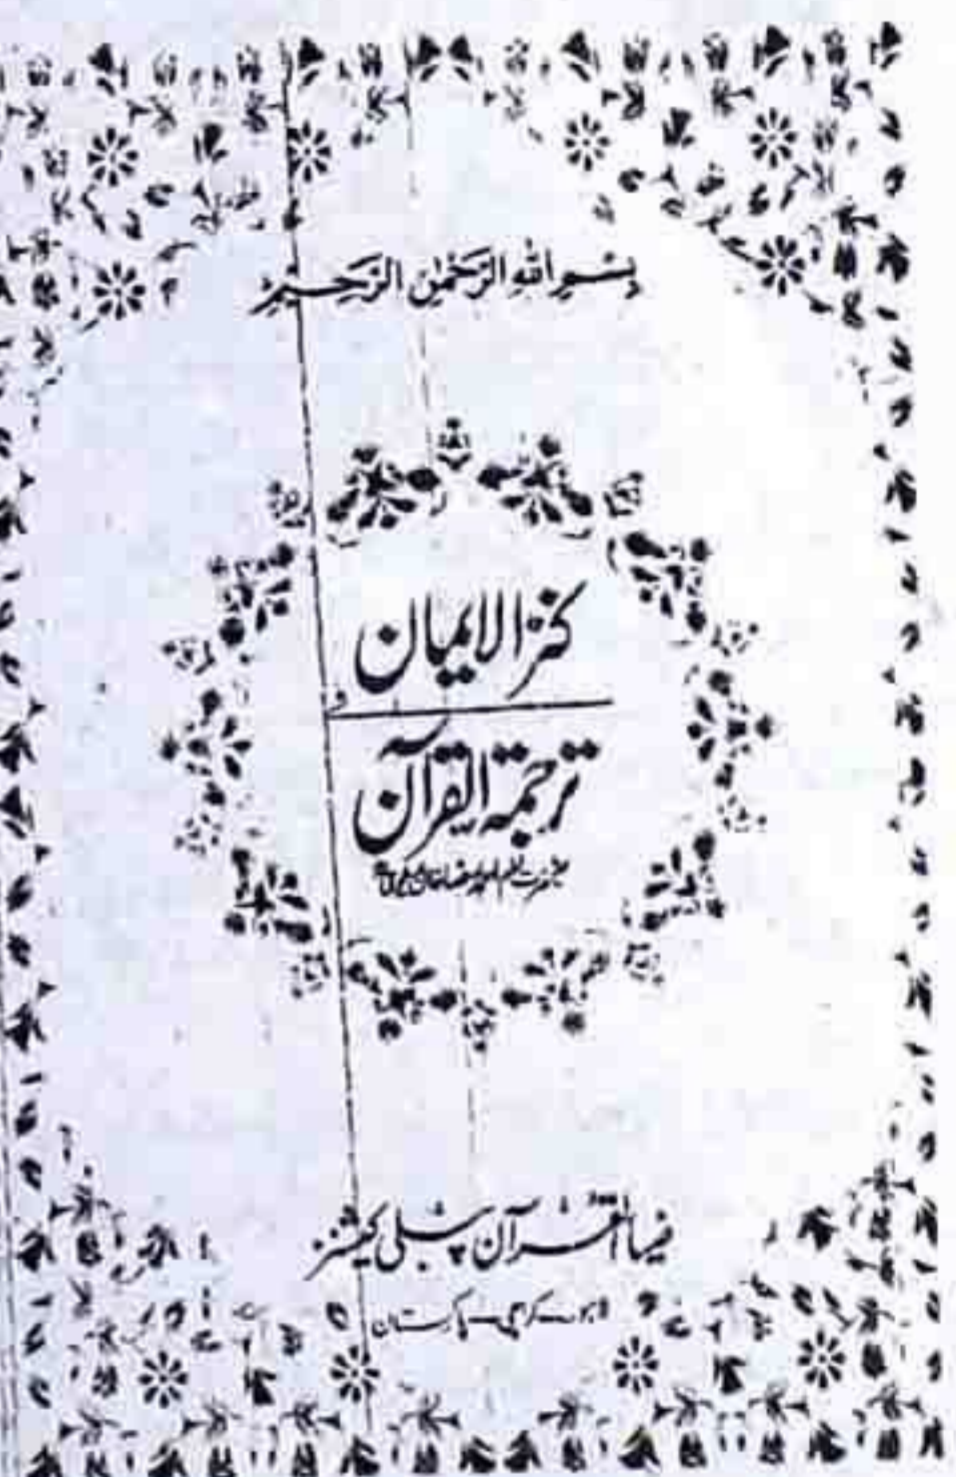 بِسْمِ اللهِ الرَّحْمٰنِ الرَّحِيْمِ
کنز الایمان
فی
ترجمۃ القرآن
ضیاء القرآن پبلی کیشنز
لاہور - کراچی - پاکستان